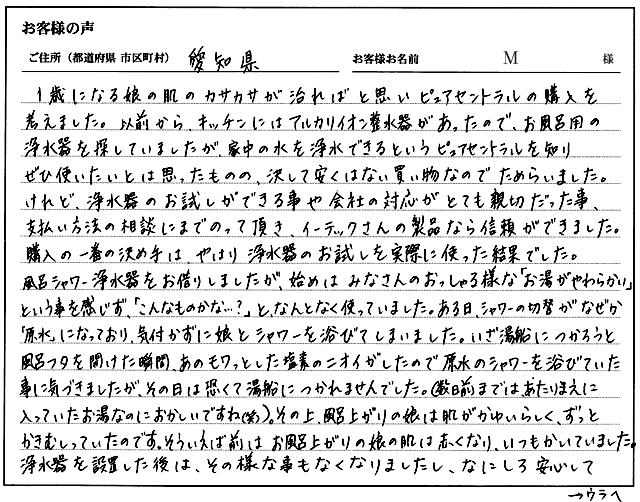 お客様の声
ご住所（都道府県 市区町村） 愛知県 お客様お名前 M 様
1歳になる娘の肌のカサカサが治ればと思いピュアセントラルの購入を
考えました。以前から、キッチンにはアルカリイオン整水器があったので、お風呂用の
浄水器を探していましたが、家中の水を浄水できるというピュアセントラルを知り
ぜひ使いたいとは思ったものの、決して安くはない買い物なのでためらいました。
けれど、浄水器のお試しができる事や会社の対応がとても親切だった事、
支払い方法の相談にまでのって頂き、イーテックさんの製品なら信頼ができました。
購入の一番の決め手は、やはり浄水器のお試しを実際に使った結果でした。
風呂シャワー浄水器をお借りしましたが、始めはみなさんのおっしゃる様な「お湯がやわらかい」
という事を感じず、「こんなものかな…？」と、なんとなく使っていました。ある日、シャワーの切替がなぜか
「原水」になっており、気付かずに娘とシャワーを浴びてしまいました。いざ湯船につかろうと
風呂フタを開けた瞬間、あのモワッとした塩素のニオイがしたので原水のシャワーを浴びていた
事に気づきましたが、その日は恐くて湯船につかれませんでした。(数日前まではあたりまえに
入っていたお湯なのにおかしいですね(笑)。その上、風呂上がりの娘は肌がかゆいらしく、ずっと
かきむしっていたのです。そういえば前はお風呂上がりの娘の肌は赤くなり、いつもかいていました。
浄水器を設置した後は、その様な事もなくなりましたし、なにしろ安心して
→ウラへ